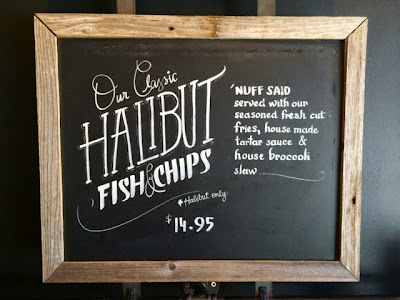 Our Classic
HALIBUT
FISH & CHIPS
*Halibut only
$14.95
'NUFF SAID
served with our
seasoned fresh cut
fries, house made
tartar sauce &
house broccoli
slaw